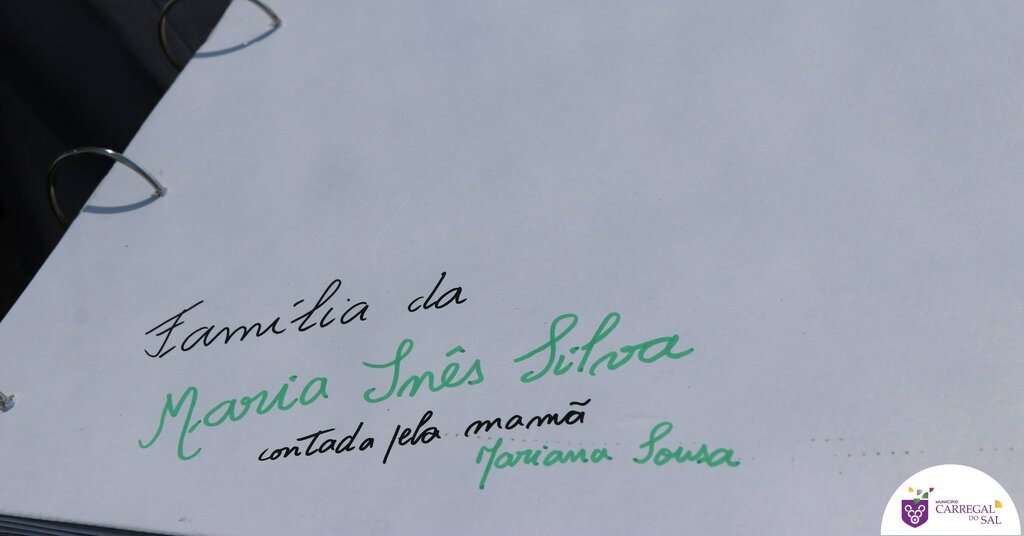 Família da
Maria Inês Silva
contada pela mamã
Mariana Sousa
MUNICÍPIO
CARREGAL
DO SAL